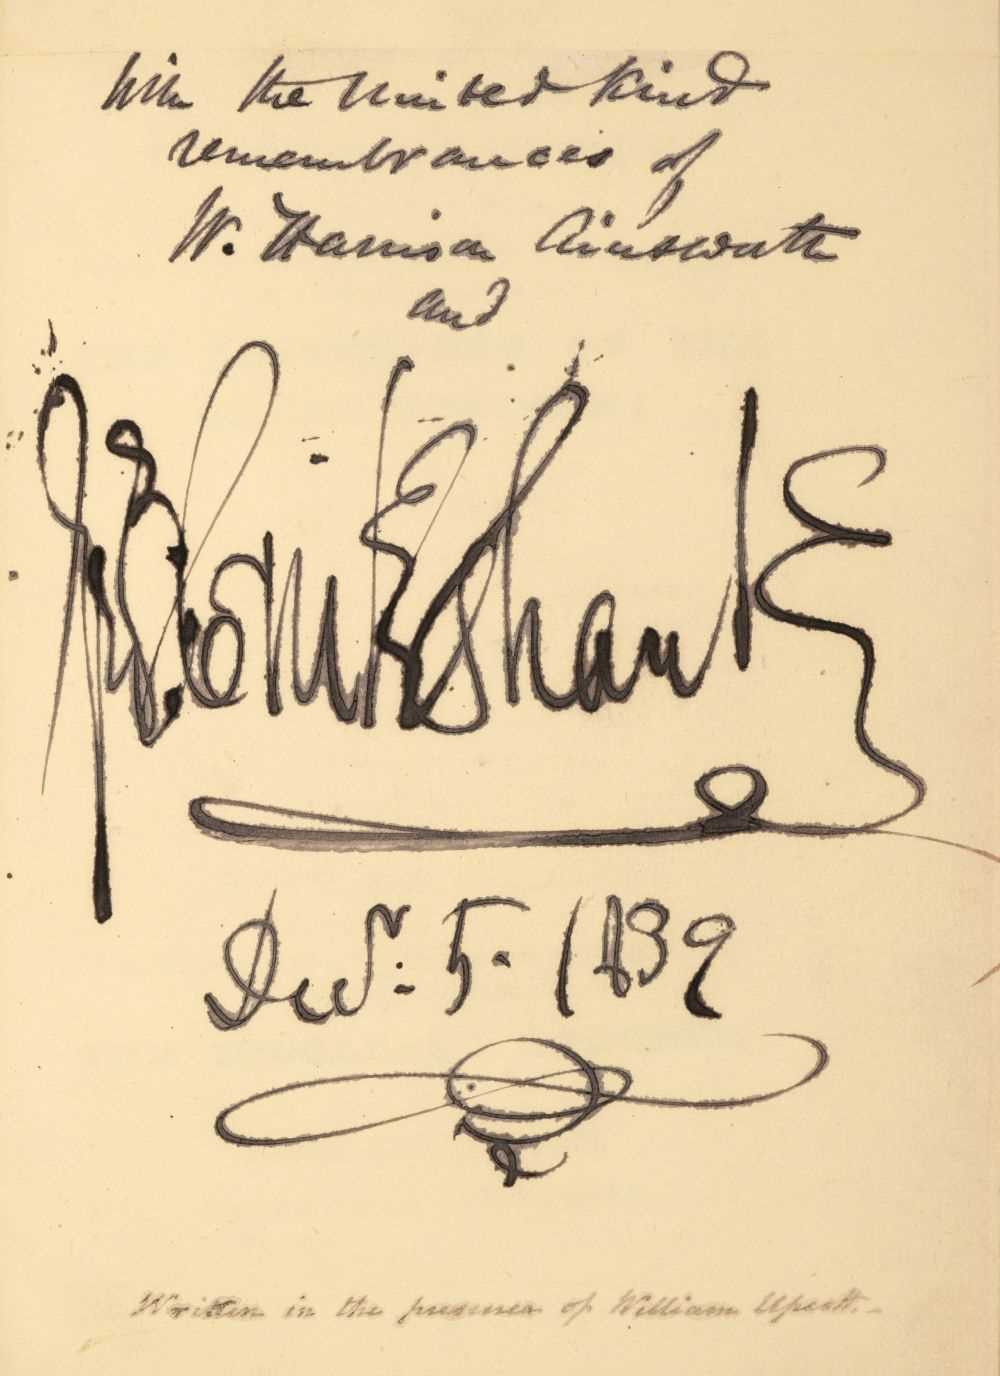 With the United Kind
remembrances of
W. Harrison Ainsworth
and
George Cruikshank
Decr. 5. 1839
Written in the presence of William Upcott.